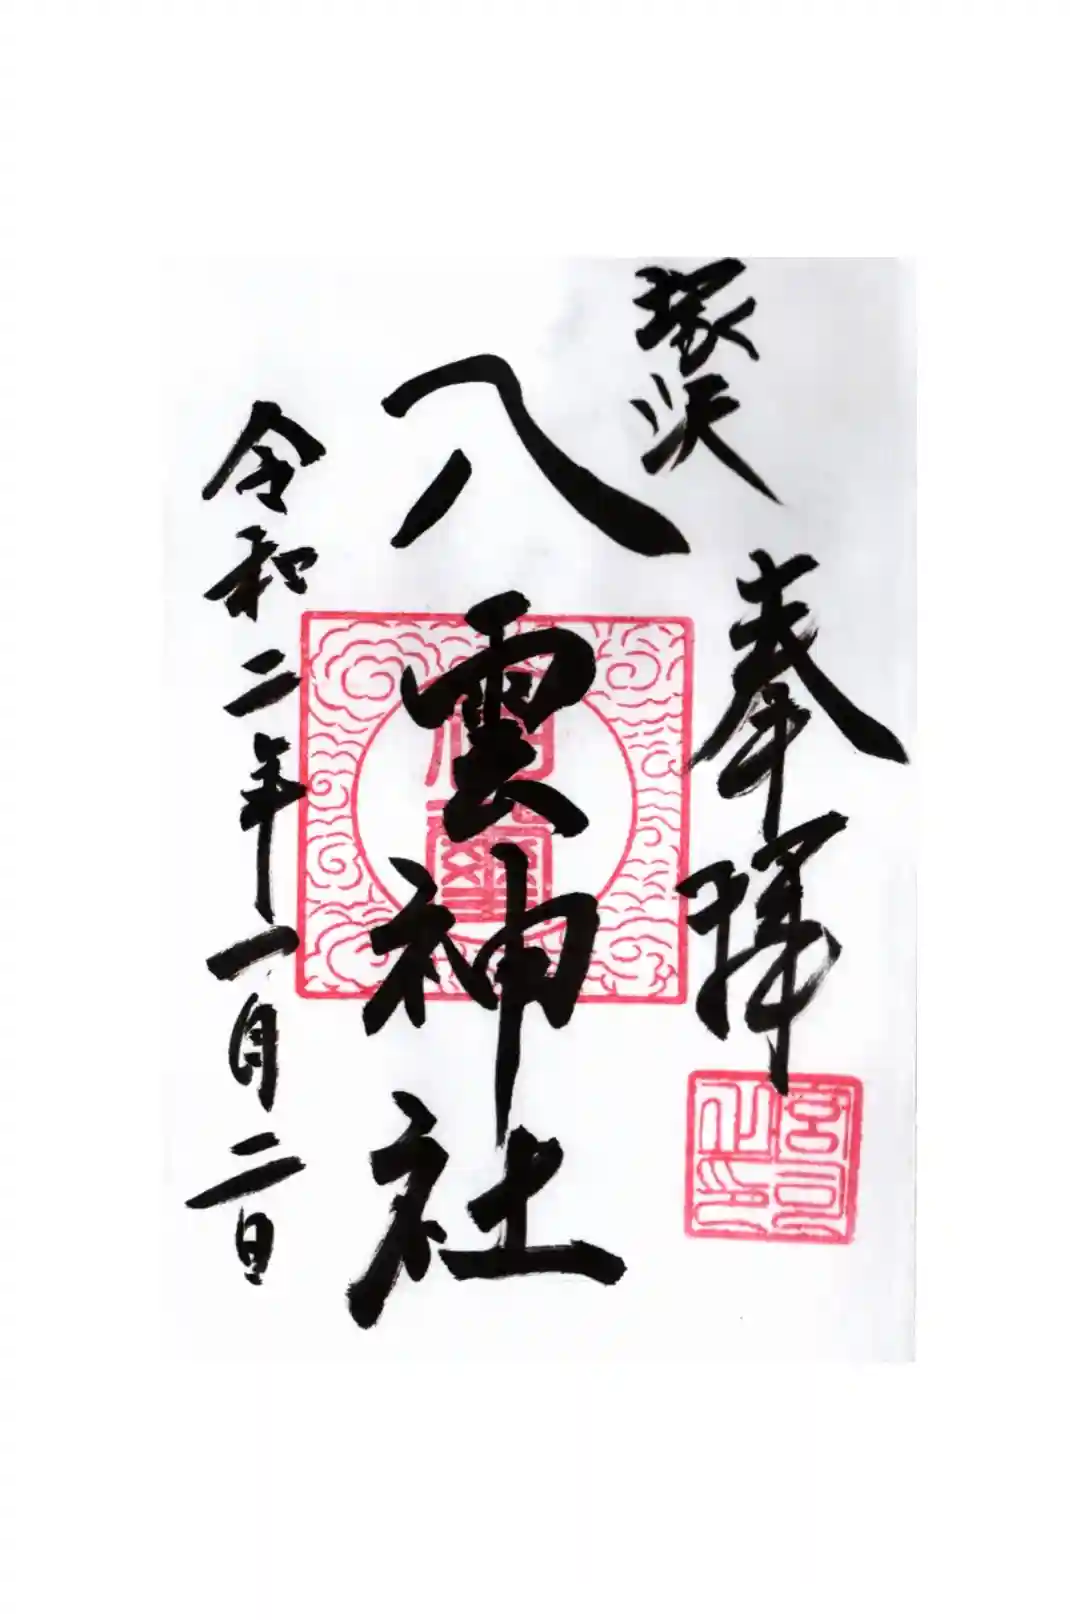 塚沢
奉拝
八雲神社
令和二年一月二日
宮司之印